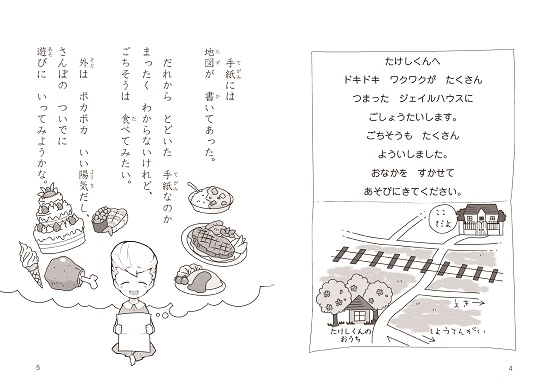 たけしくんへ
ドキドキ ワクワクが たくさん
つまった ジェイルハウスに
ごしょうたいします。
ごちそうも たくさん
よういしました。
おなかを すかせて
あそびにきてください。
ここ
だよ
えき→
しょうてんがい
たけしくんの
おうち
4
手紙には
地図が 書いてあった。
だれから とどいた 手紙なのか
まったく わからないけれど、
ごちそうは 食べてみたい。
外は ポカポカ いい陽気だし、
さんぽの ついでに
遊びに いってみようかな。
5